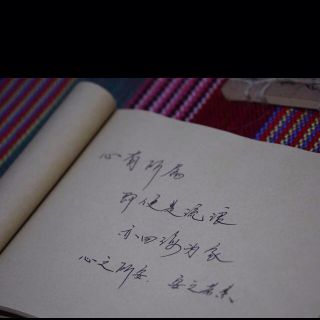 心有所属
即便是流浪
亦四海为家
心之所安 安之若素